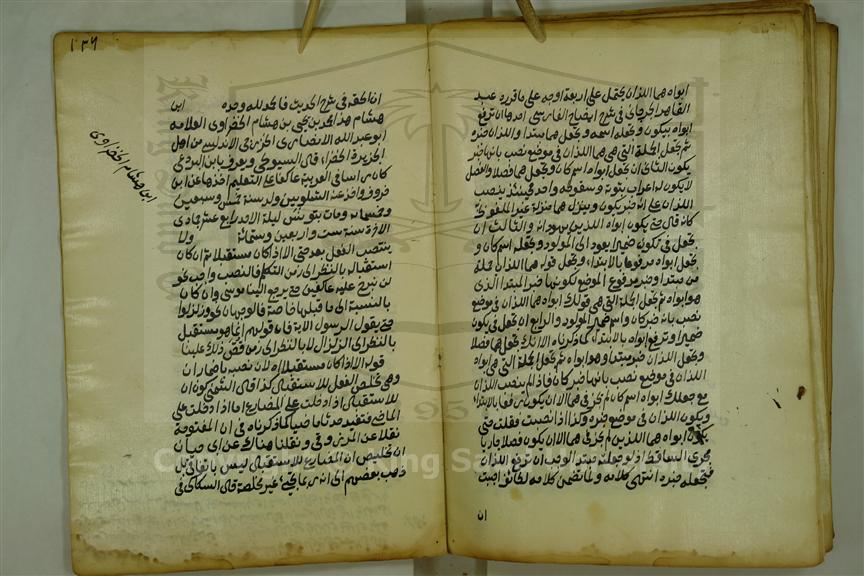 ابواه هما اللذان يحتمل على اربعة اوجه على ما قرره عبد
القاهر الجرجاني في شرح ايضاح الفارسي احدها ان ترفع
ابواه بيكون وتجعله اسمه وتجعل هما مبتدا واللذان خبره
ثم تجعل الجملة التي هي هما اللذان في موضع نصب بانها خبر
يكون الثاني ان تجعل ابواه اسم كان وتجعل هما فصلا والفصل
لا يكون له اعراب ثبوته وسقوطه واحد فحينئذ ينصب
اللذان على انه خبر يكون وينزل هما منزلة غير الملفوظ
كانه قال حتى يكون ابواه اللذين يهودانه والثالث ان
تجعل في يكون ضميرا يعود الى المولود وتجعله اسم كان و
تجعل ابواه مرفوعا بالابتداء وتجعل قوله هما اللذان جملة
من مبتدا وخبر مرفوع الموضع لكونها خبر المبتدا الذي
هو ابواه ثم تجعل الجملة التي هي قولك ابواه هما اللذان في موضع
نصب بانه خبر كان واسمه ضمير المولود والرابع ان تجعل في يكون
ضميرا وترفع ابواه بالابتداء كما ذكرناه الا انك تجعل هما فصلا
وتجعل اللذان خبر مبتدا وهو ابواه ثم تجعل الجملة التي هي ابواه
اللذان في موضع نصب بانها خبر كان فاذا لم ينصب اللذان
مع جعلك ابواه اسم كان لم يجز في هما الا ان يكون مرفوعا بالابتداء
ويكون اللذان في موضع خبره وكذا اذا نصبت فقلت حتى
يكون ابواه هما اللذين لم يجز في هما الا ان يكون فصلا جاريا
مجرى الساقط اذ لو جعلته مبتدا لوجب ان ترفع اللذان
فتجعله خبره انتهى كلامه ولما تضمن كلامه
ان
١٣٦
في شرح الحديث فالحمد لله وحده ابن
هشام هذا محمد بن يحيى بن هشام الخضراوي العلامة
ابو عبد الله الانصاري الخزرجي الاندلسي من اهل
الجزيرة الخضراء قال السيوطي ويعرف بابن البرذعي
كان راسا في العربية عاكفا على التعليم اخذها عن ابن
خروف واخذ عنه الشلوبين ولد سنة خمس وسبعين
وخمسمائة ومات بتونس ليلة الاحد رابع عشر جمادى
الاخرة سنة ست واربعين وستمائة ولا
ينتصب الفعل بعد حتى الا اذا كان مستقبلا ثم ان كان
استقباله بالنظر الى زمن التكلم فالنصب واجب نحو
لن نبرح عليه عاكفين حتى يرجع الينا موسى وان كان
بالنسبة الى ما قبلها خاصة فالوجهان نحو وزلزلوا
حتى يقول الرسول الاية فان قولهم انما هو مستقبل
بالنظر الى الزلزال لا بالنظر الى زمن قص ذلك علينا
قوله الا اذا كان مستقبلا اه لان نصبه باضمار ان
وهي تخلص الفعل للاستقبال كذا قال الشمني كون ان
للاستقبال اذا دخلت على المضارع اما اذا دخلت على
الماضي فتفيد صدقا ماضيا كما ذكرناه في ان المفتوحة
نقلا عن المرزوقي ونقلنا هناك عن ابي حيان
ان تخليص ان المضارع للاستقبال ليس باتفاق بل
ذهب بعضهم الى انه غير مخلصة قال السكاكي في
ابن هشام الخضراوي